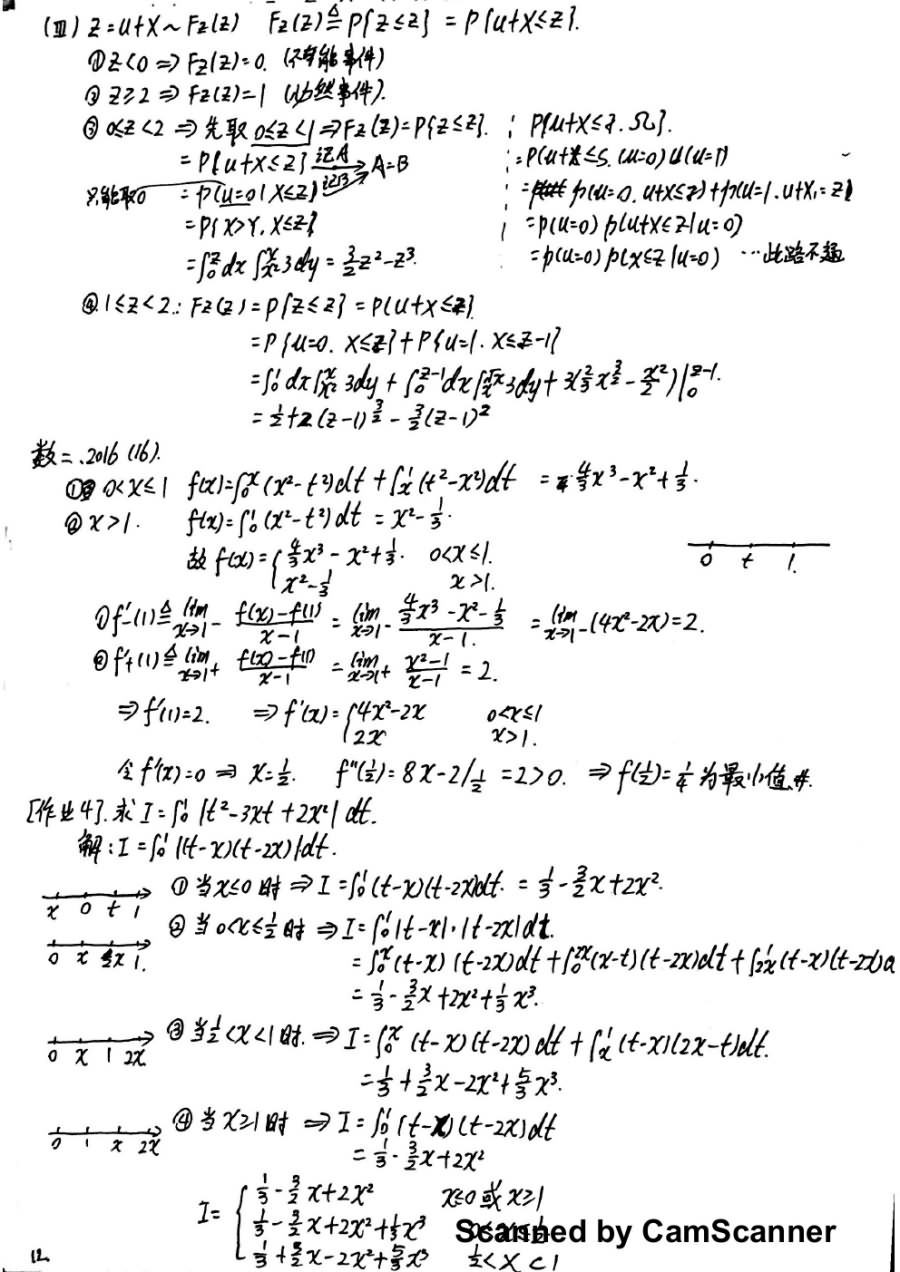 (Ⅲ) Z=U+X~Fz(Z) Fz(Z)≜P{Z≤z} = P{U+X≤z}.
①Z<0 ⇒ Fz(Z)=0. (不可能事件)
② Z≥2 ⇒ Fz(Z)=1 (必然事件).
③ 0≤Z<2 ⇒ 先取 0≤Z<1 ⇒ Fz(Z)=P{Z≤z}. P{U+X≤z. Ω}.
= P{U+X≤z} 记A A=B =P(U+X≤S. (U=0)∪(U=1)
只能取0 = P(U=0, X≤z) 记B = P(U=0. U+X≤z)+P(U=1. U+X,=z)
=P{X>Y, X≤z} =P(U=0) P(U+X≤z|U=0)
=∫₀ᶻdx∫ₓ²ˣ3dy = 3/2z²-z³. =P(U=0) P(X≤z|U=0) …此路不通
④. 1≤Z<2.: Fz(Z)=P{Z≤z} = P(U+X≤z).
=P{U=0. X≤z}+P{U=1. X≤z-1}
=∫₀¹dx∫ₓ²ˣ 3dy + ∫₀ᶻ⁻¹dx∫ₓ^√x 3dy + 3(2/3x^(3/2) - x²/2)|₀ᶻ⁻¹.
=1/2+2(z-1)^(3/2) - 3/2(z-1)²
数二.2016(16).
① 0<x≤1 f(x)=∫₀ˣ(x²-t²)dt+∫ₓ¹(t²-x²)dt = 4/3x³-x²+1/3.
② x>1. f(x)=∫₀¹(x²-t²)dt = x²-1/3.
故 f(x)={4/3x³-x²+1/3. 0<x≤1.
x²-1/3 x>1.
0 t 1.
①f'₋(1)≜lim x→1⁻ (f(x)-f(1))/(x-1) = lim x→1⁻ (4/3x³-x²-1/3)/(x-1). = lim x→1⁻(4x²-2x)=2.
②f'₊(1)≜lim x→1⁺ (f(x)-f(1))/(x-1) = lim x→1⁺ (x²-1)/(x-1) = 2.
⇒f'(1)=2. ⇒f'(x)={4x²-2x 0<x≤1
2x x>1.
令f'(x)=0 ⇒ x=1/2. f''(1/2)=8x-2|1/2 =2>0. ⇒f(1/2)=1/4为最小值.#.
[作业4].求I=∫₀¹|t²-3xt+2x²|dt.
解:I=∫₀¹|(t-x)(t-2x)|dt.
x 0 t 1 ①当x≤0时⇒I=∫₀¹(t-x)(t-2x)dt. = 1/3-3/2x+2x².
②当0<x≤1/2时 ⇒I=∫₀¹|t-x|·|t-2x|dt.
0 x 2x 1. =∫₀ˣ(t-x)(t-2x)dt+∫ₓ²ˣ(x-t)(t-2x)dt+∫₂ₓ¹(t-x)(t-2x)d
=1/3-3/2x+2x²+1/3x³.
0 x 1 2x ③当1/2<x<1时.⇒I=∫₀ˣ(t-x)(t-2x)dt+∫ₓ¹(t-x)(2x-t)dt.
=-1/3+3/2x-2x²+5/3x³.
0 1 x 2x ④当x≥1时 ⇒I=∫₀¹(t-x)(t-2x)dt
=1/3-3/2x+2x²
I= {1/3-3/2x+2x² x≤0或x≥1
1/3-3/2x+2x²+1/3x³ 0<x≤1/2
-1/3+3/2x-2x²+5/3x³ 1/2<x<1
Scanned by CamScanner
12